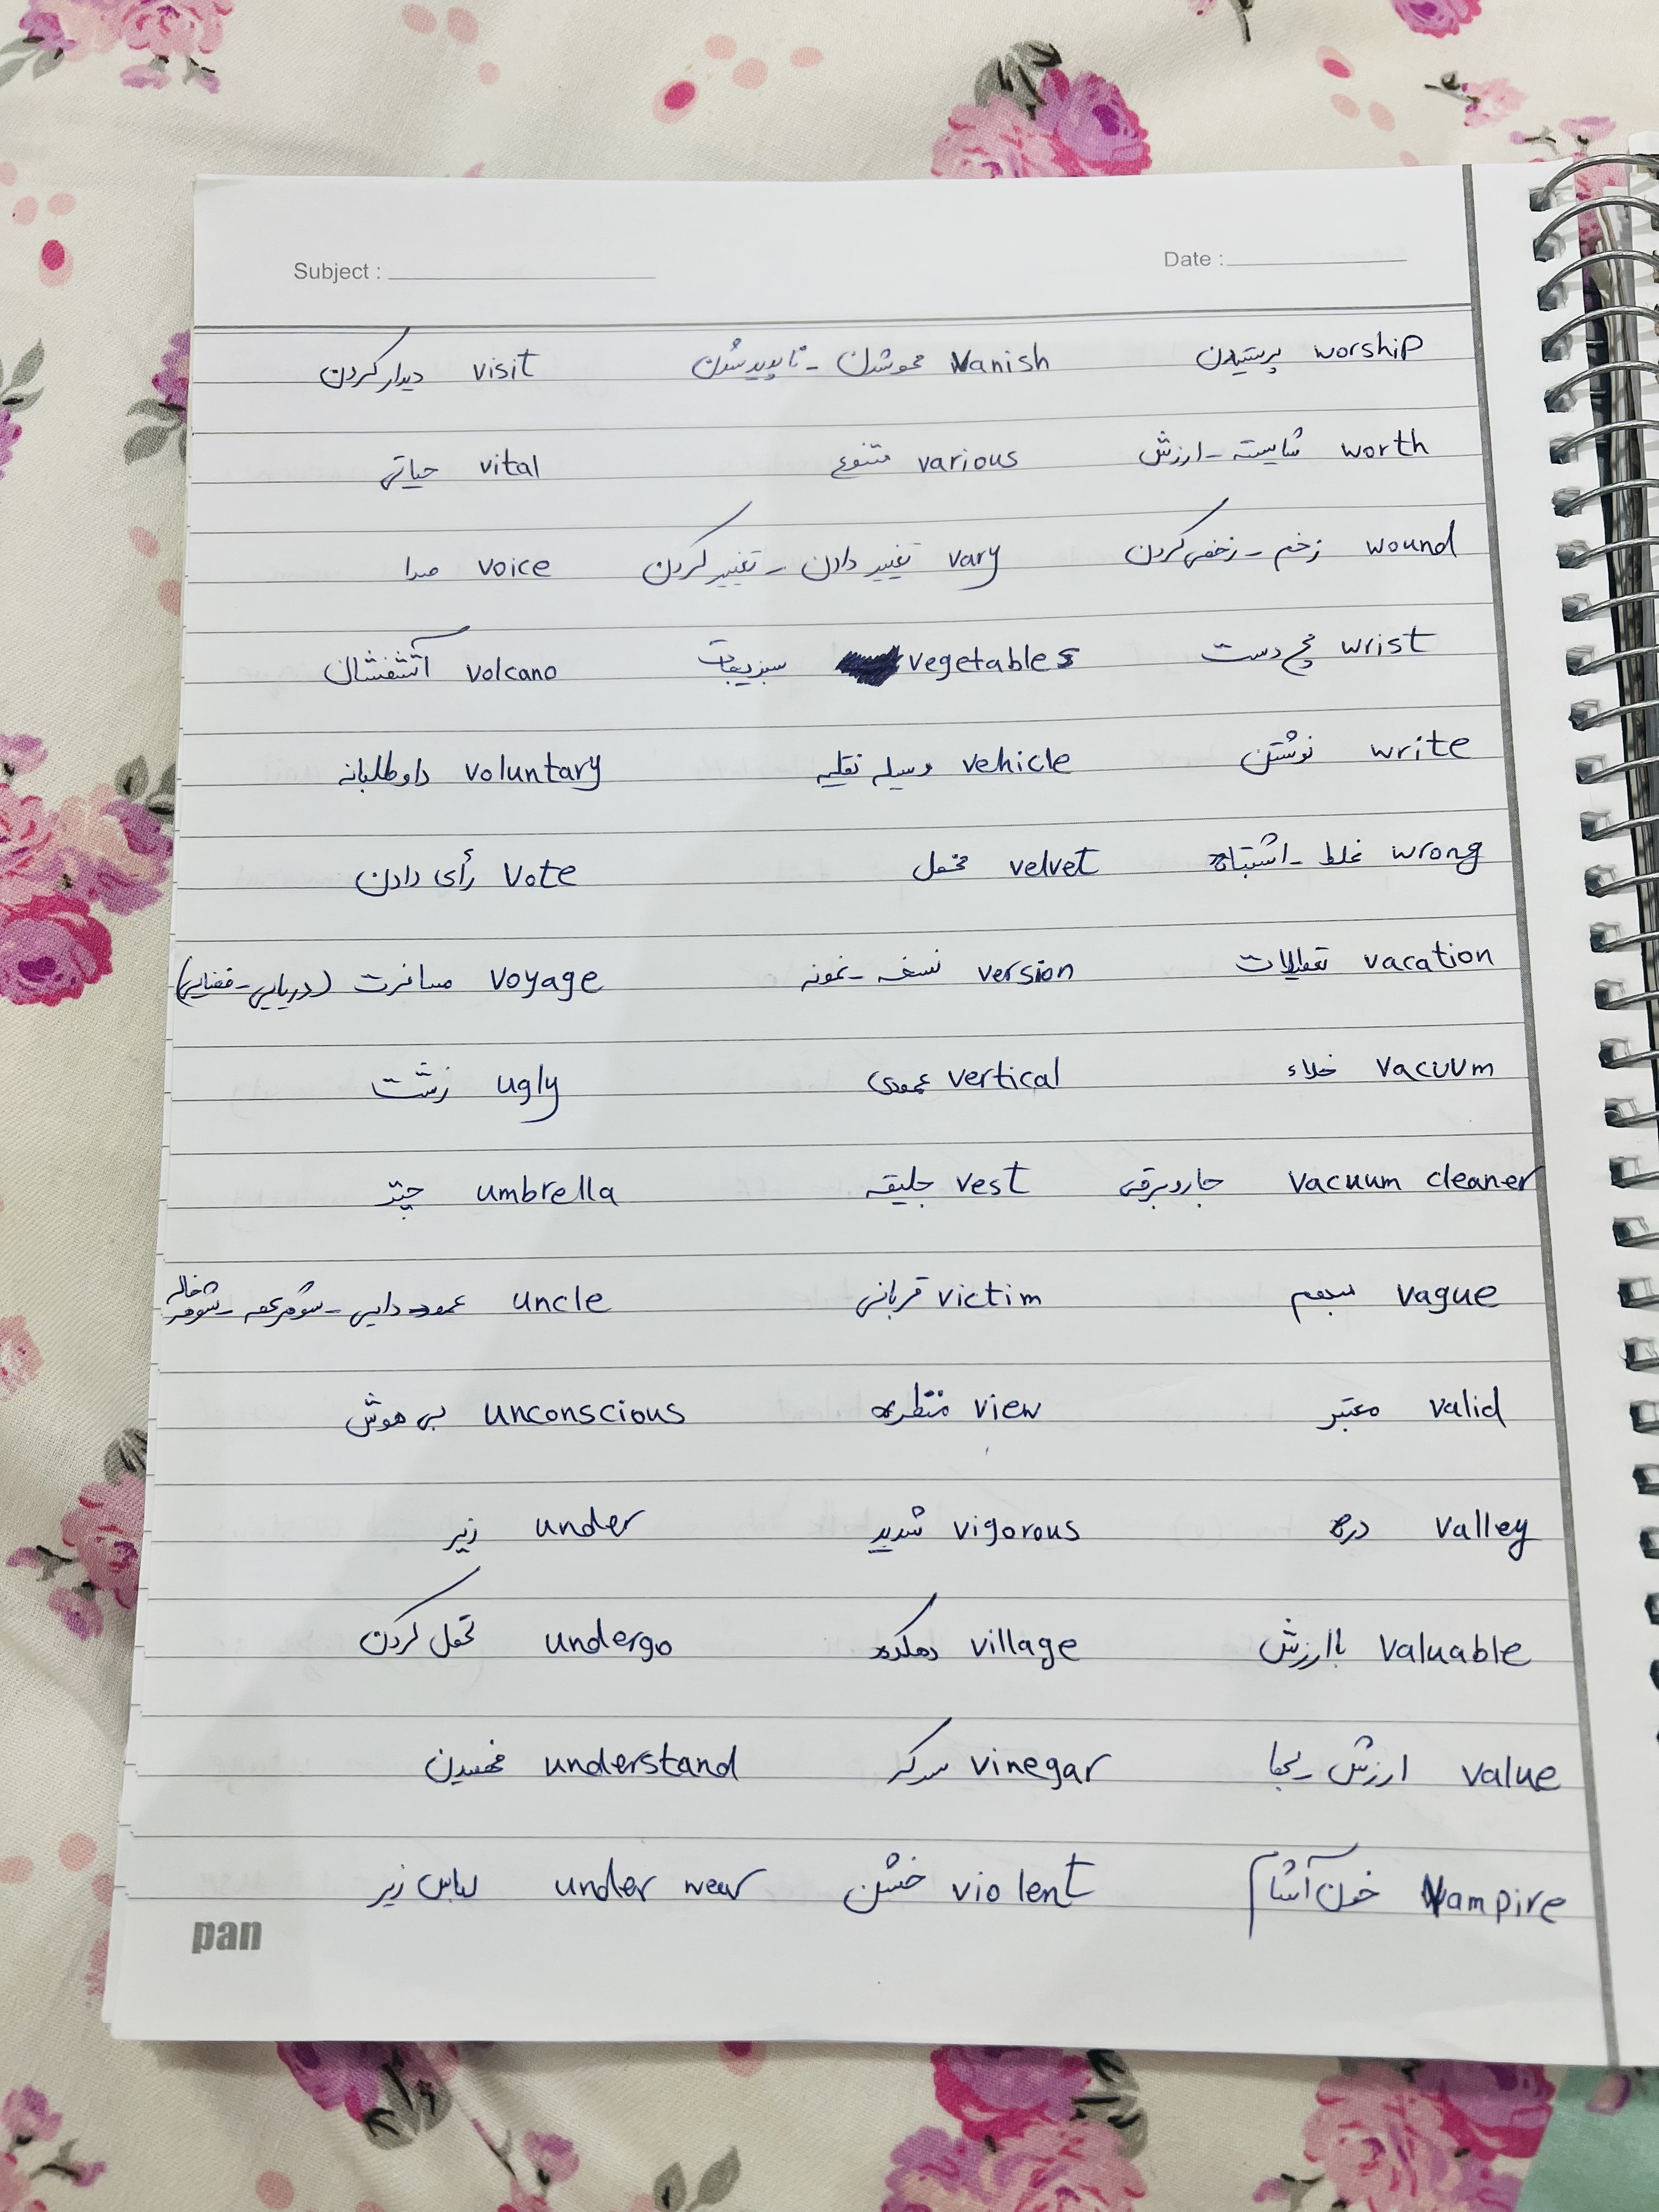 Subject : Date :
worship پرستیدن vanish محو شدن - ناپدید شدن visit دیدار کردن
worth شایسته - ارزش various متنوع vital حیاتی
wound زخم - زخمی کردن vary تغییر دادن - تغییر کردن voice صدا
wrist مچ دست vegetables سبزیجات volcano آتشفشان
write نوشتن vehicle وسیله نقلیه voluntary داوطلبانه
wrong غلط - اشتباه velvet مخمل vote رأی دادن
vacation تعطیلات version نسخه - نمونه voyage مسافرت (دریایی - فضایی)
vacuum خلاء vertical عمودی ugly زشت
vacuum cleaner جاروبرقی vest جلیقه umbrella چتر
vague مبهم victim قربانی uncle عمو - دایی - شوهر عمه - شوهر خاله
valid معتبر view منظره unconscious بی هوش
valley دره vigorous شدید under زیر
valuable باارزش village دهکده undergo تحمل کردن
value ارزش vinegar سرکه understand فهمیدن
vampire خون آشام violent خشن under wear لباس زیر
pan